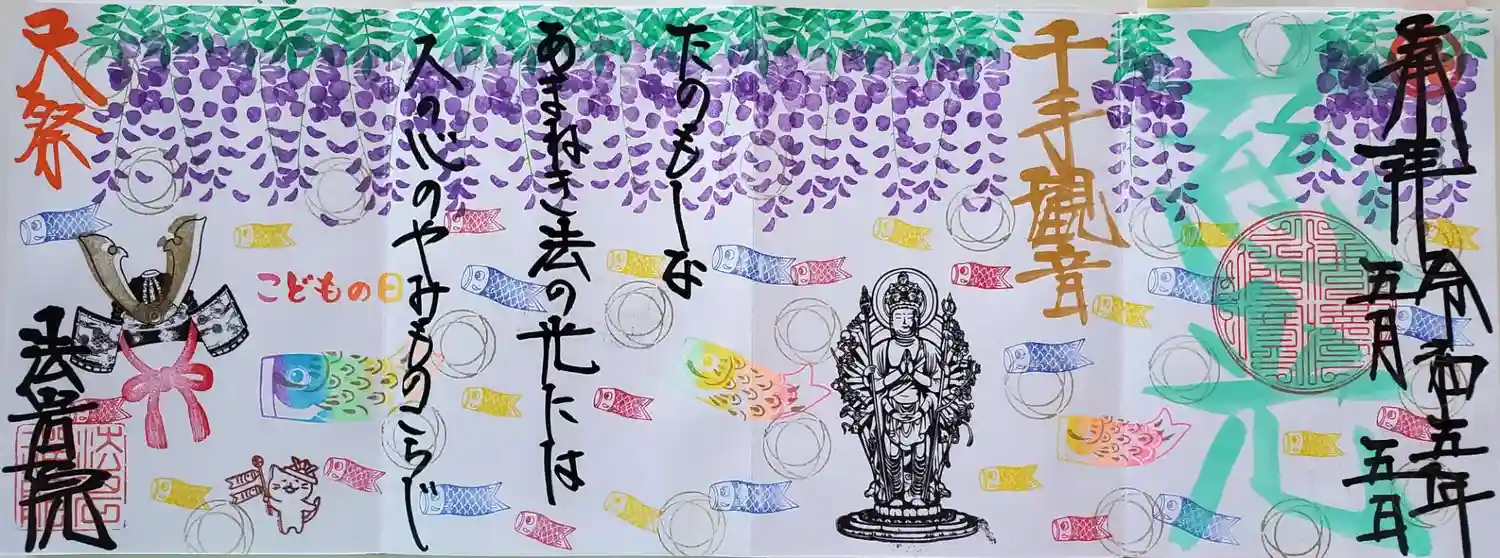 奉拝
令和五年
五月
五日
慈光
千手観音
たのもしな
あまねき法の光には
人の心のやみものこらじ
こどもの日
大祭
法音院